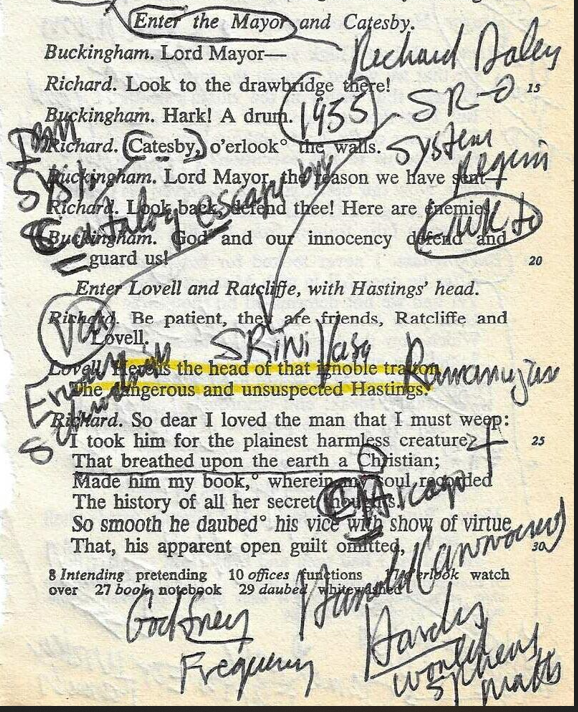 Enter the Mayor and Catesby.
Richard Daley
Buckingham. Lord Mayor—
Richard. Look to the drawbridge there! 15
Buckingham. Hark! A drum.
1955
SR-0
System
Richard. Catesby, o'erlook° the walls.
Buckingham. Lord Mayor, the reason we have sent—
Richard. Look back, defend thee! Here are enemies.
Buckingham. God and our innocency defend and
guard us! 20
Catalog escape
Enter Lovell and Ratcliffe, with Hastings' head.
Richard. Be patient, they are friends, Ratcliffe and
Lovell.
Via
SRiNiVasa Ramanujan
Lovell. Here is the head of that ignoble traitor,
The dangerous and unsuspected Hastings.
Richard. So dear I loved the man that I must weep:
I took him for the plainest harmless creature 25
That breathed upon the earth a Christian;
Made him my book,° wherein my soul recorded
The history of all her secret thoughts.
So smooth he daubed° his vice with show of virtue
That, his apparent open guilt omitted, 30
8 Intending pretending 10 offices functions o'erlook watch
over 27 book notebook 29 daubed whitewashed
Godfrey
Harold
Hardy
Frequency
maths